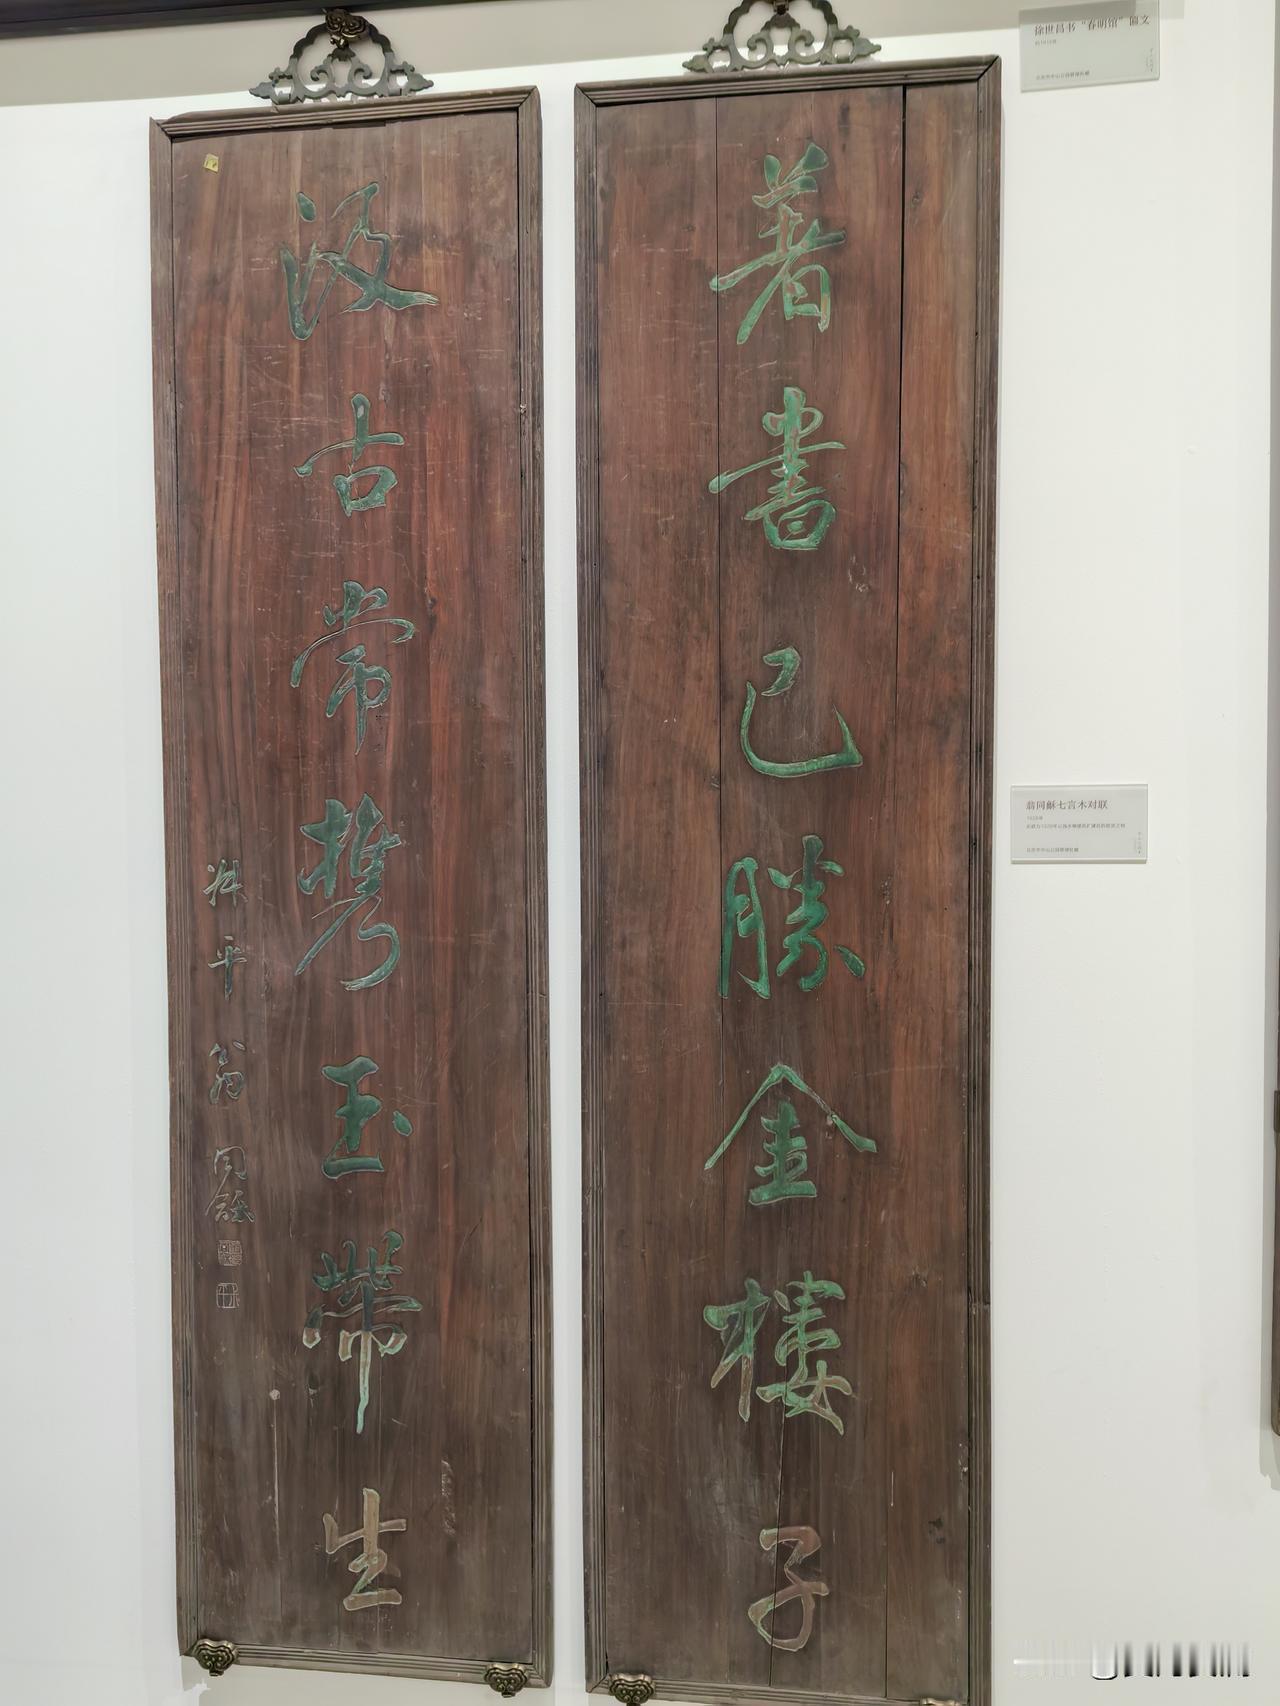 著書已勝金樓子
汲古常攜玉帶生
叔平翁同龢
徐世昌书“春明馆”匾文
翁同龢七言木对联